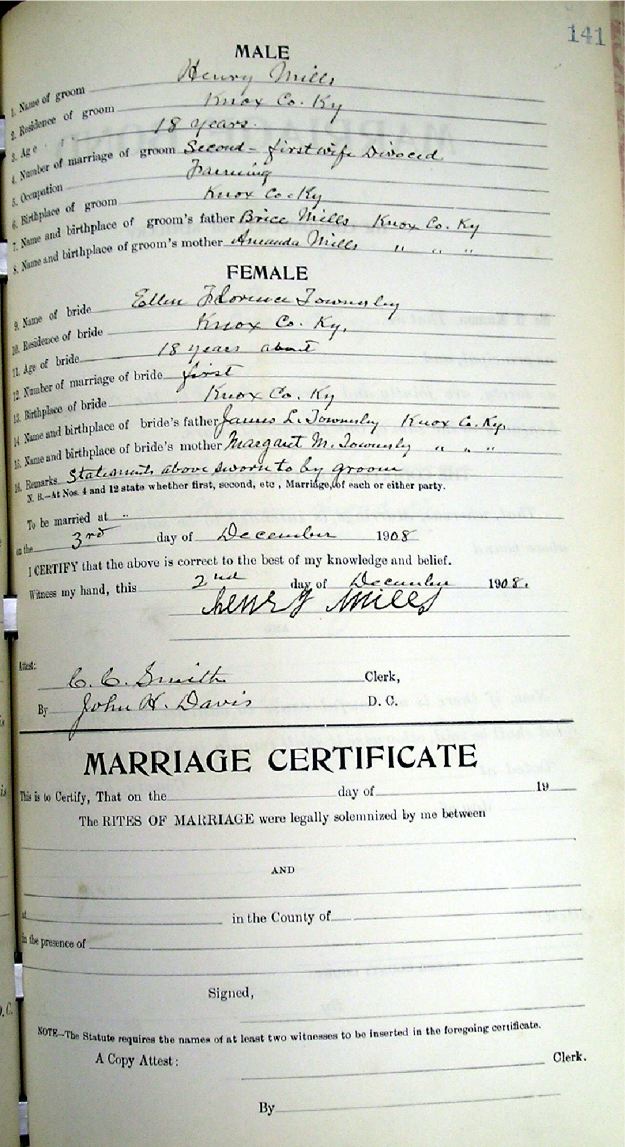 141
MALE
1. Name of groom Henry Mills
2. Residence of groom Knox Co. Ky
3. Age 18 years.
4. Number of marriage of groom Second - first wife Divoced
5. Occupation Farming
6. Birthplace of groom Knox Co. Ky
7. Name and birthplace of groom's father Brice Mills Knox Co. Ky
8. Name and birthplace of groom's mother Amanda Mills " " "
FEMALE
9. Name of bride Ellen Florence Townsley
10. Residence of bride Knox Co. Ky.
11. Age of bride 18 years about
12 Number of marriage of bride first
13. Birthplace of bride Knox Co. Ky
14 Name and birthplace of bride's father James L. Townsley Knox Co. Ky.
15. Name and birthplace of bride's mother Margaret M. Townsley " " "
16. Remarks Statements above sworn to by groom
N. B.—At Nos. 4 and 12 state whether first, second, etc., Marriage, of each or either party.
To be married at "
on the 3rd day of December 1908
I CERTIFY that the above is correct to the best of my knowledge and belief.
Witness my hand, this 2nd day of December 1908.
Henry Mills
Attest:
C. C. Smith Clerk,
By John H. Davis D. C.
MARRIAGE CERTIFICATE
This is to Certify, That on the day of 19
The RITES OF MARRIAGE were legally solemnized by me between
AND
at in the County of
in the presence of
Signed,
NOTE—The Statute requires the names of at least two witnesses to be inserted in the foregoing certificate.
A Copy Attest:
Clerk.
By